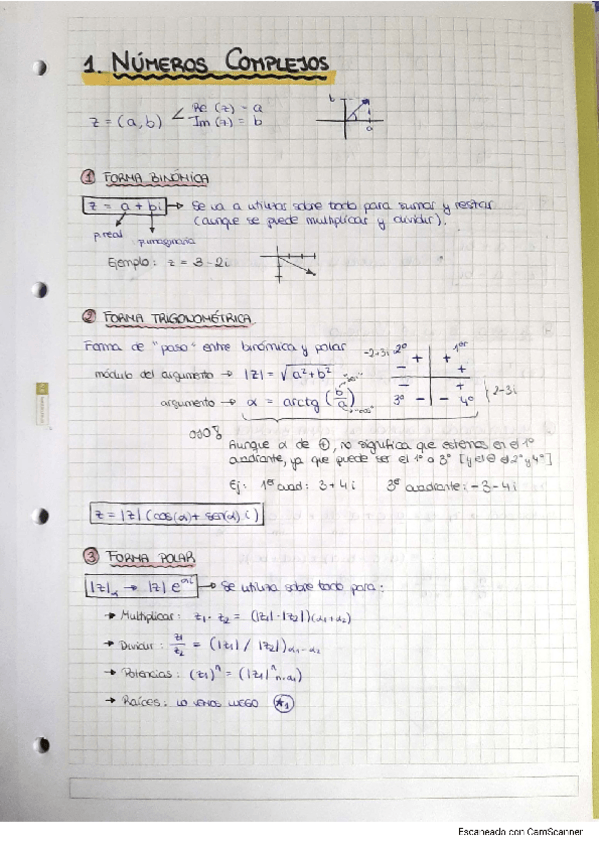 1. NÚMEROS COMPLEJOS
z = (a, b) < Re (z) = a
Im (z) = b
b
a
1 FORMA BINÓMICA
z = a + bi → Se va a utilizar sobre todo para sumar y restar
(aunque se puede multiplicar y dividir).
p.real
p.imaginaria
Ejemplo: z = 3 - 2i
2 FORMA TRIGONOMÉTRICA
Forma de "paso" entre binómica y polar
módulo del argumento → |z| = √a²+b²
argumento → α = arctg (b/a)
-2+3i 2º + + 1er
- +
- +
3º - - 4º
2-3i
Aunque α de +, no significa que estemos en el 1º
cuadrante, ya que puede ser el 1º o 3º [y el ⊖ el 2º y 4º]
Ej: 1er cuad: 3 + 4i 3er cuadrante: -3 - 4i
z = |z| (cos(α) + sen(α) i)
3 FORMA POLAR
|z|α → |z| e^αi → Se utiliza sobre todo para:
→ Multiplicar: z₁ · z₂ = (|z₁| · |z₂|)(α₁+α₂)
→ Dividir: z₁/z₂ = (|z₁| / |z₂|)α₁-α₂
→ Potencias: (z₁)ⁿ = (|z₁|ⁿ n·α₁)
→ Raíces: LO VEMOS LUEGO ★1
Escaneado con CamScanner